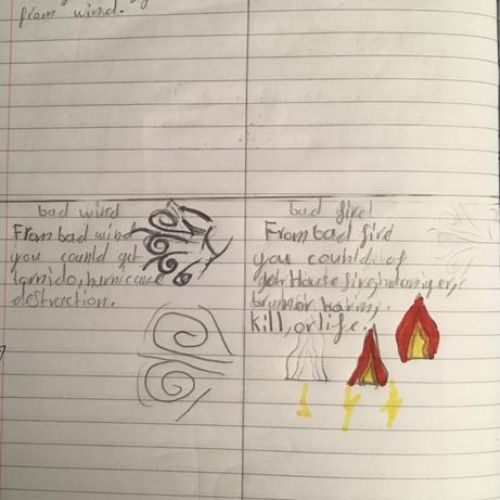 from wind.
bad wind
From bad wind
you counld get
tornido, hurricane
destraction.
bad fire!
From bad fire
you counld of
get House fire
or harm,
kill, or life.